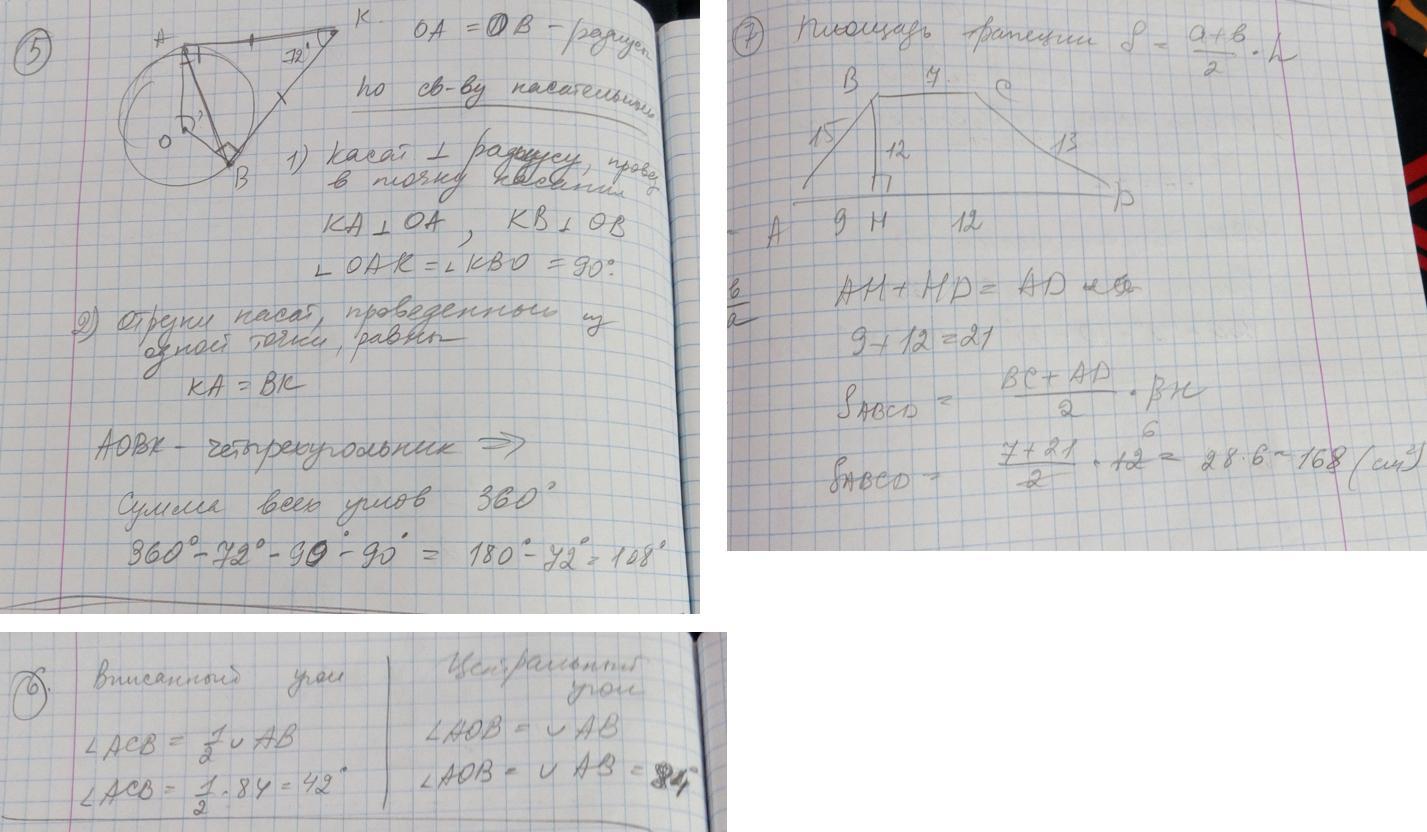 5
A
K
72°
O
B
OA = OB - радиусы
по св-ву касательных
1) Касат ⊥ радиусу, провед
в точку касания
KA ⊥ OA , KB ⊥ OB
∠OAK = ∠KBO = 90°.
2) Отрезки касат, проведенных из
одной точки, равны
KA = BK
AOBK - четырехугольник ⇒
Сумма всех углов 360°
360° - 72° - 90° - 90° = 180° - 72° = 108°
7 Площадь трапеции S = a+b/2 · h
B 7 C
15 12 13
A 9 H 12 D
b/a
AH + HD = AD
9 + 12 = 21
SABCD = BC + AD/2 · BH
SABCD = 7+21/2 · 12 6 = 28 · 6 = 168 (см²)
6. Вписанный угол
∠ACB = 1/2 ∪ AB
∠ACB = 1/2 · 84 = 42°
Центральный
угол
∠AOB = ∪ AB
∠AOB = ∪ AB = 84°